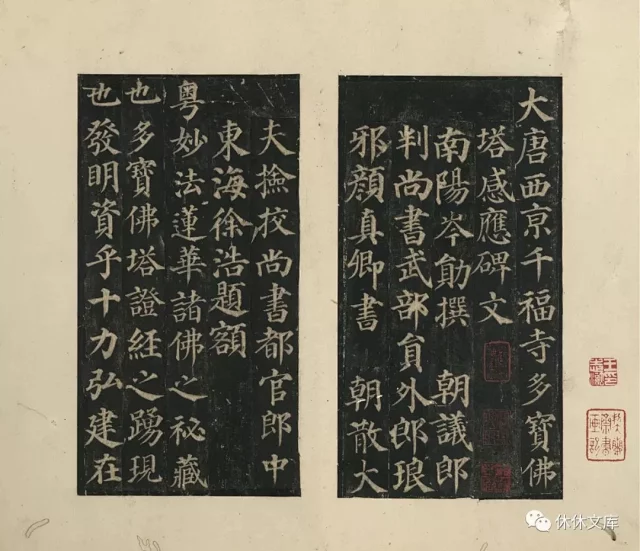 大唐西京千福寺多寶佛
塔感應碑文
南陽岑勛撰 朝議郎
判尚書武部員外郎琅
邪顏真卿書 朝散大
夫撿挍尚書都官郎中
東海徐浩題額
粵妙法蓮華諸佛之祕藏
也多寶佛塔證經之踴現
也發明資乎十力弘建在
休休文库